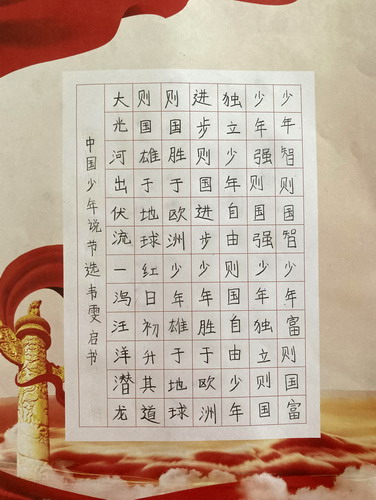 少年智则国智少年富则国富
少年强则国强少年独立则国
独立少年自由则国自由少年
进步则国进步少年胜于欧洲
则国胜于欧洲少年雄于地球
则国雄于地球红日初升其道
大光河出伏流一泻汪洋潜龙
中国少年说节选韦雯启书